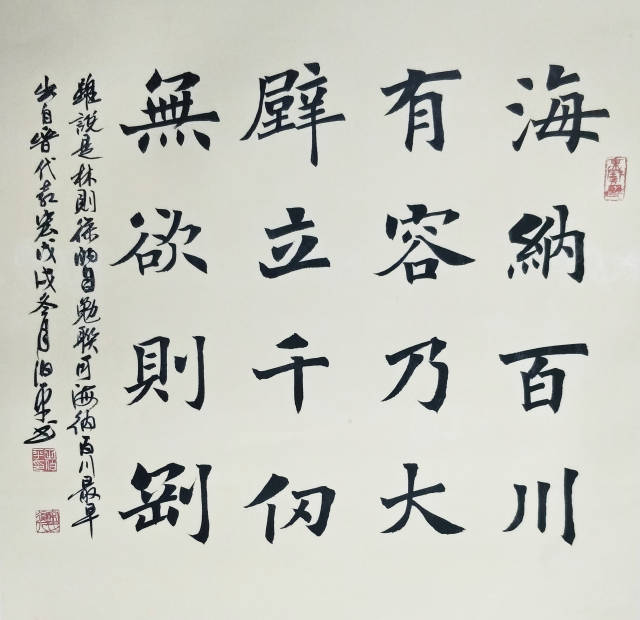 海納百川
有容乃大
壁立千仞
無欲則剛
雖說是林則徐的自勉聯可海納百川最早
出自晉代袁宏戊戌冬月